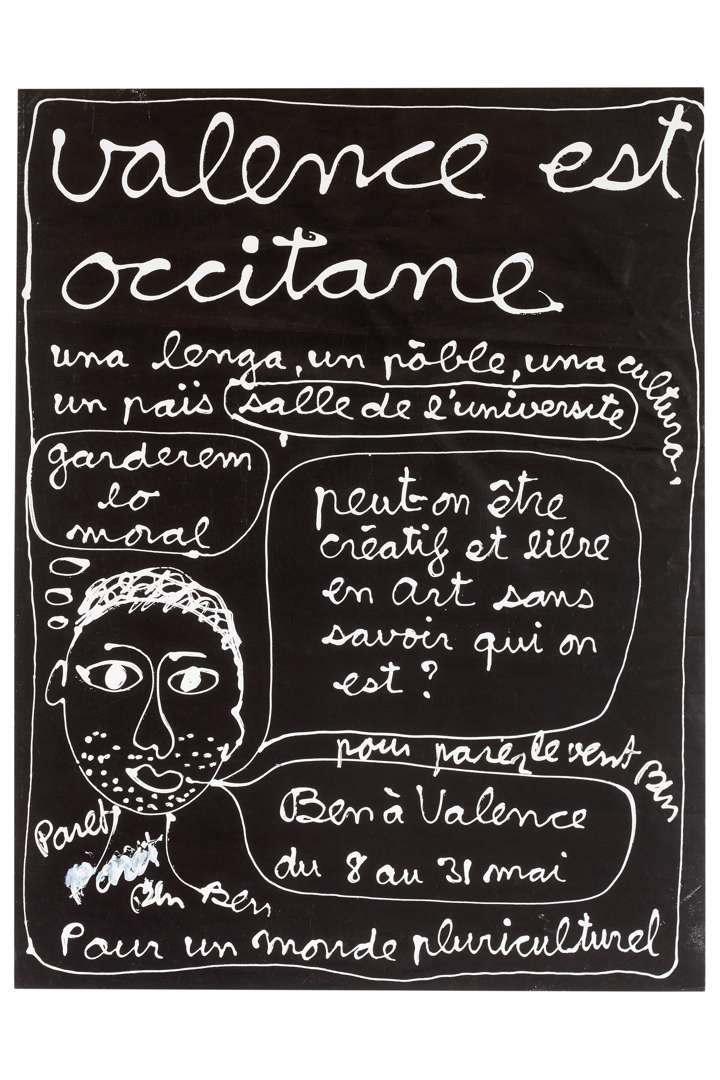 valence est
occitane
una lenga, un pòble, una cultura,
un païs salle de l'université
garderem
lo
moral
peut-on être
créatif et libre
en art sans
savoir qui on
est ?
pour parez le vent Ben
Ben à Valence
du 8 au 31 mai
Paret
Ben Ben
Pour un monde pluriculturel